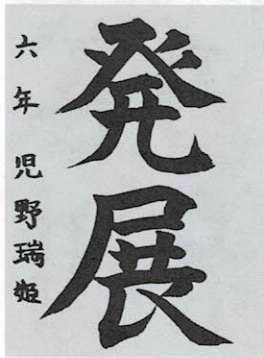 発展
六年 児野瑞姫